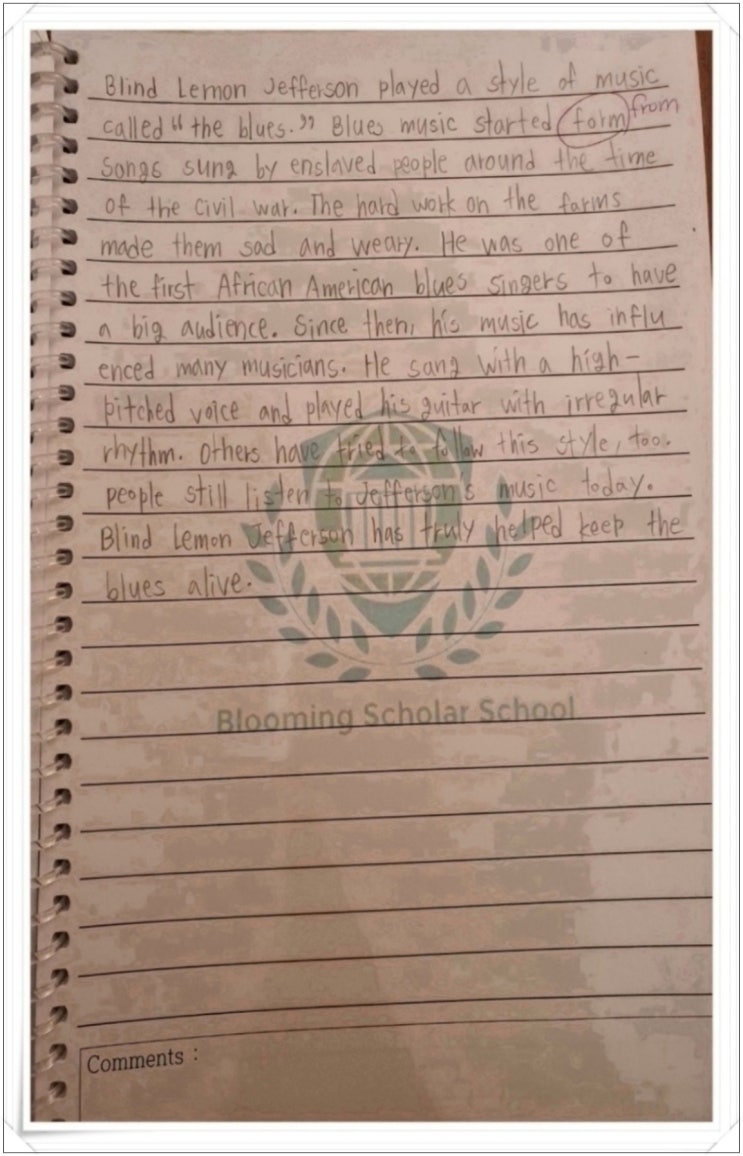 Blind Lemon Jefferson played a style of music
called "the blues." Blues music started form from
songs sung by enslaved people around the time
of the civil war. The hard work on the farms
made them sad and weary. He was one of
the first African American blues singers to have
a big audience. Since then, his music has influ
enced many musicians. He sang with a high-
pitched voice and played his guitar with irregular
rhythm. Others have tried to follow this style, too.
people still listen to Jefferson's music today.
Blind Lemon Jefferson has truly helped keep the
blues alive.
Blooming Scholar School
Comments :